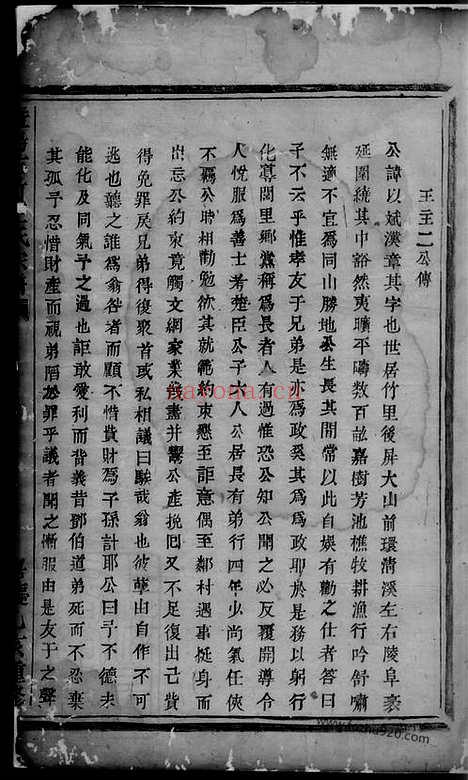 王主二公傳
公諱以斌漢章其字也世居竹里後屏大山前環清溪左右陵阜袤
延圍繞其中豁然夷曠平疇数百畝嘉樹芳池樵牧耕漁行吟舒嘯
無適不宜爲同山勝地公生長其間常以此自娱有勸之仕者答曰
子不云乎惟孝友于兄弟是亦爲政奚其爲爲政耶於是務以躬行
化導閭里鄉黨稱爲長者人有過惟恐公知公聞之必反覆開導令
人悅服爲善士若楚臣公子人公居長有弟行四年少尚氣任俠
不羈公時相勸勉欲其就範約束懇至詎意偶至鄰村遇事挺身而
出忘公約束竟觸文網家業蕩盡并鬻公產挽回又不足復出己貲
得免罪戾兄弟得復聚首或私相議曰駭哉翁也彼孽由自作不可
逃也聽之誰爲翁咎者而顧不惜費財爲子孫計耶公曰予不德未
能化及同氣予之過也詎敢愛利而背義昔鄧伯道弟死而不忍棄
其孤予忍惜財產而視弟陷於罪乎議者聞之慚服由是友于之聲
narona.cn
fozhu920.com